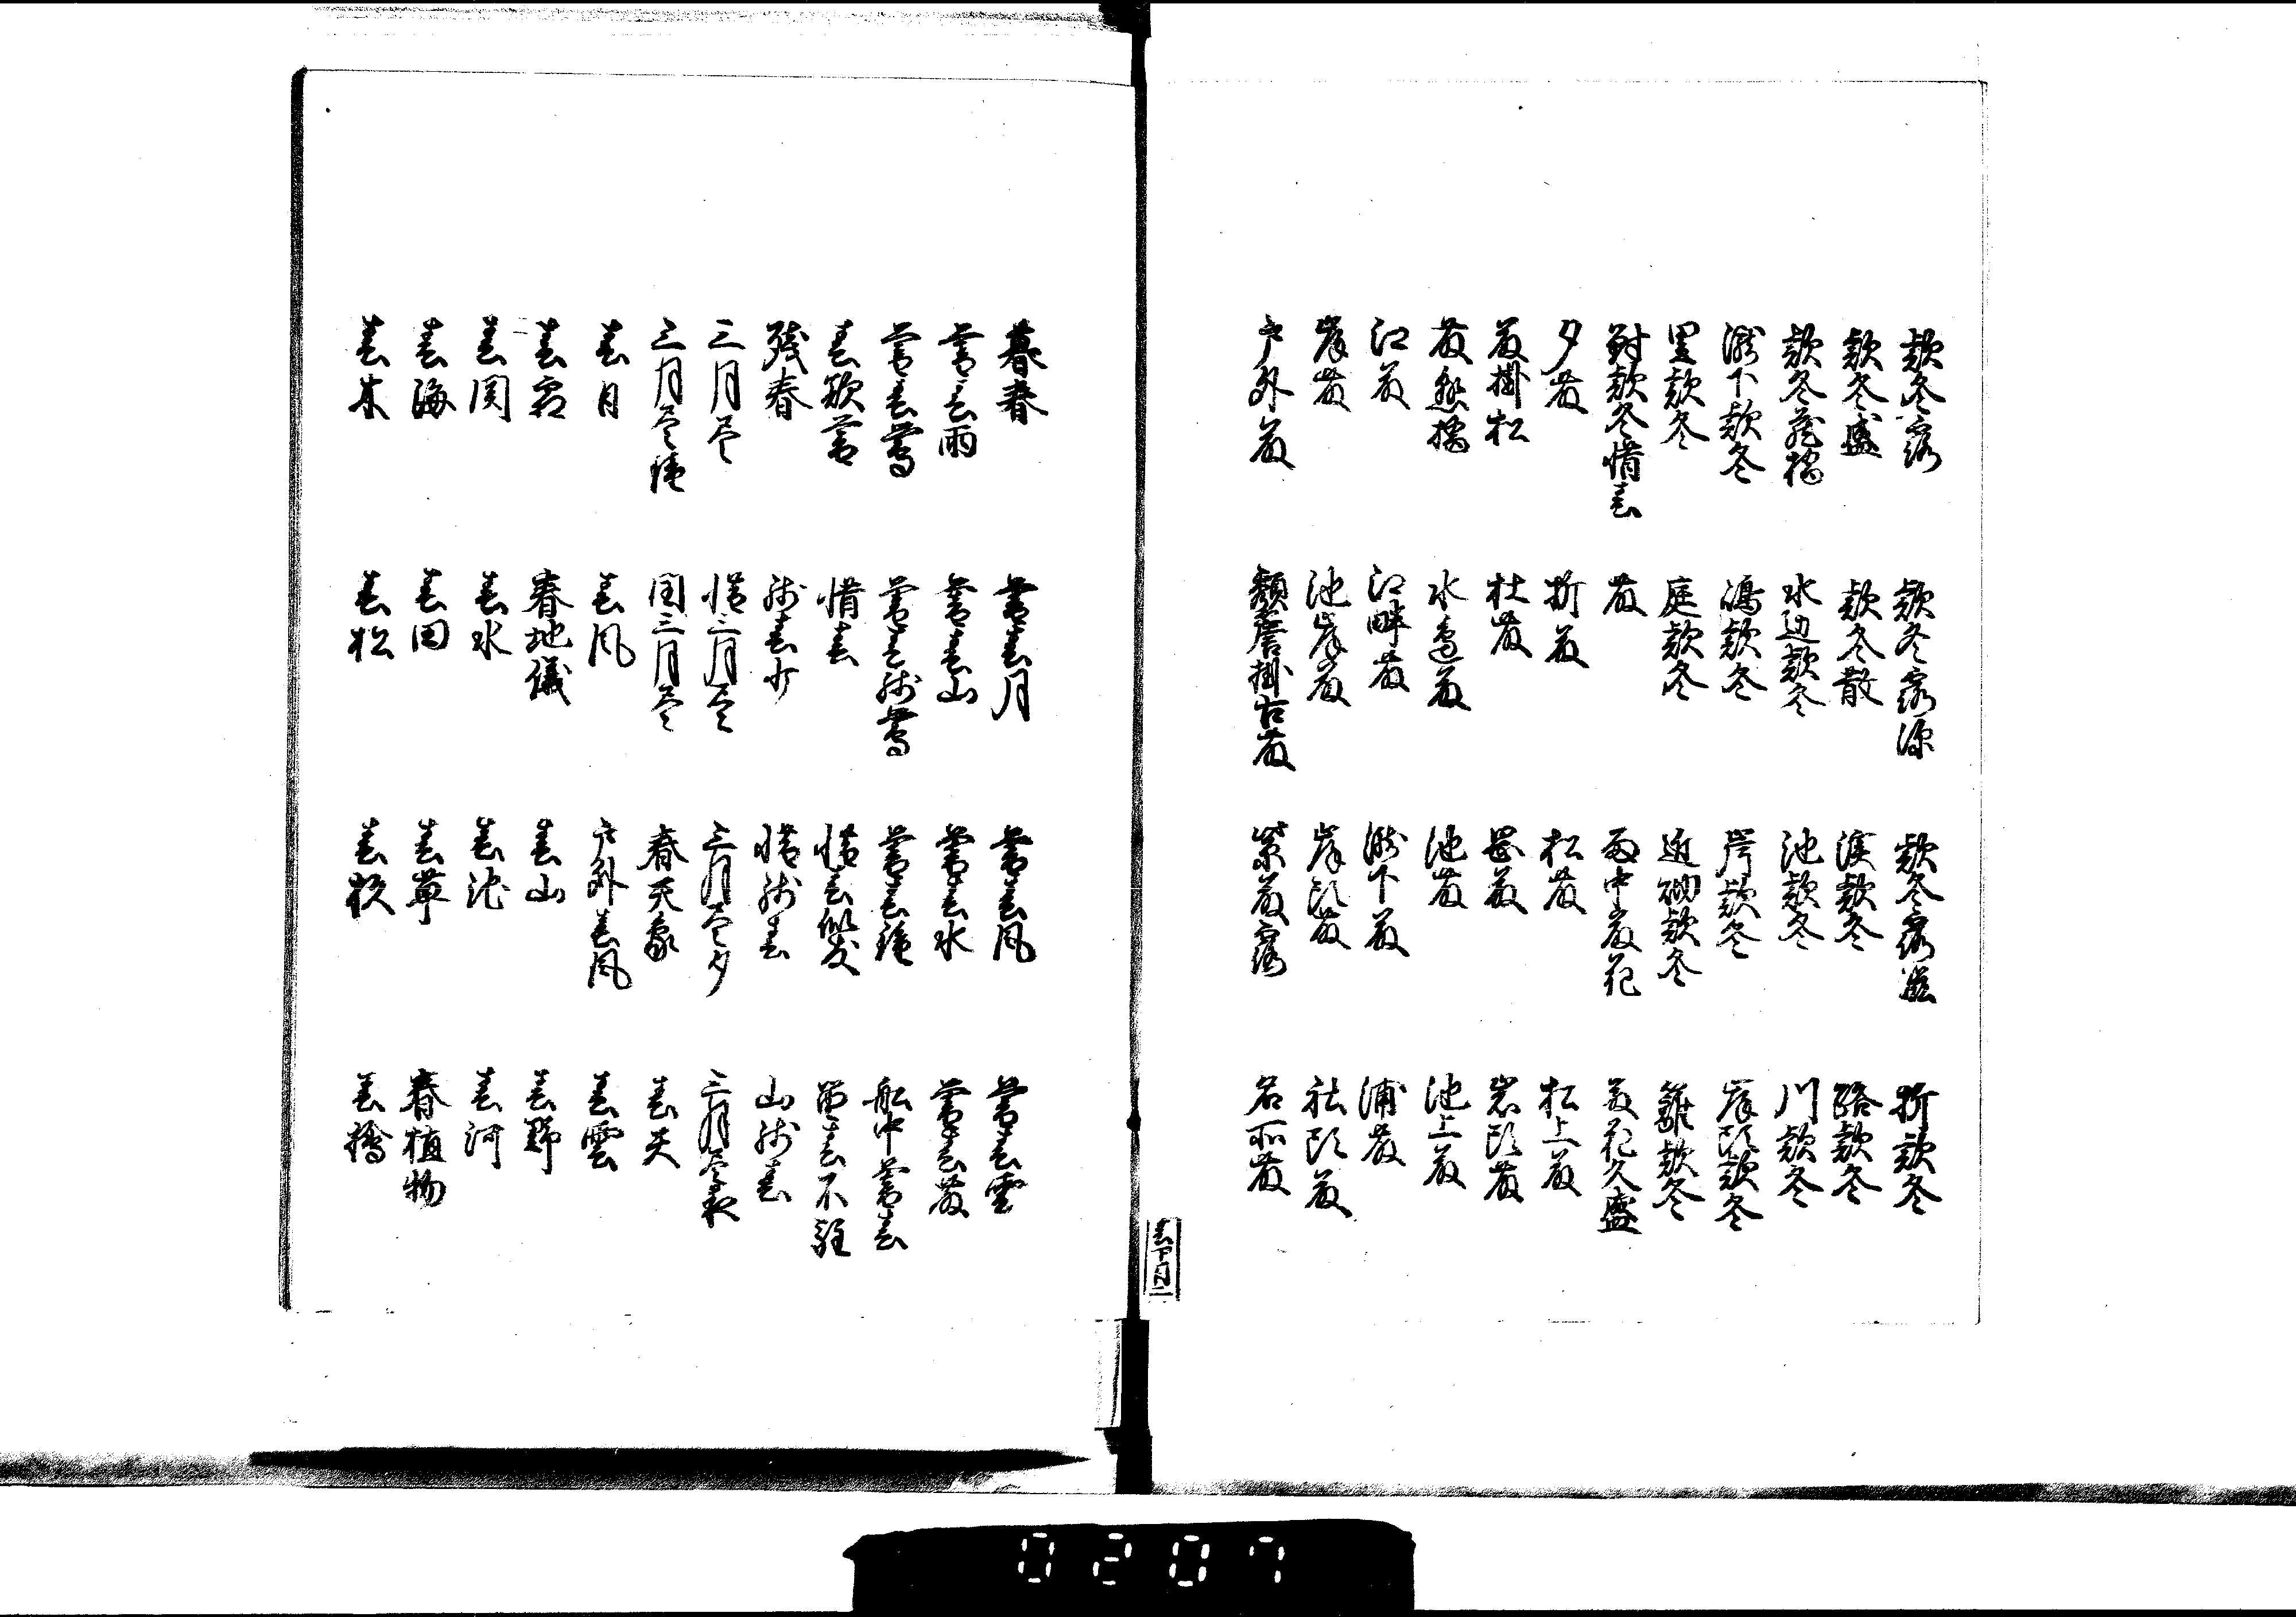 款冬露 款冬露深 款冬露滋 折款冬
款冬盛 款冬散 渓款冬 路款冬
款冬蔵橋 水辺款冬 池款冬 川款冬
滝下款冬 嶋款冬 岸款冬 岸頭款冬
里款冬 庭款冬 近砌款冬 籬款冬
対款冬惜春 藤 雨中藤花 藤花久盛
夕藤 折藤 松藤 松上藤
藤掛松 杜藤 岩藤 岩頭藤
藤懸橋 水辺藤 池藤 池上藤
江藤 江畔藤 滝下藤 浦藤
岸藤 池岸藤 岸頭藤 社頭藤
戸外藤 頽簷掛古藤 紫藤露 名所藤
春下目二
暮春 暮春月 暮春風 暮春雲
暮春雨 暮春山 暮春水 暮春藤
暮春鶯 暮春残鶯 暮春鐘 船中暮春
春欲暮 惜春 惜春似友 留春不駐
残春 残春少 惜残春 山残春
三月尽 惜三月尽 三月尽夕 三月尽夜
三月尽鐘 閏三月尽 春天象 春天
春月 春風 戸外春風 春雲
春霜 春地儀 春山 春野
春関 春水 春池 春河
春海 春田 春草 春植物
春木 春松 春杉 春橋
0207